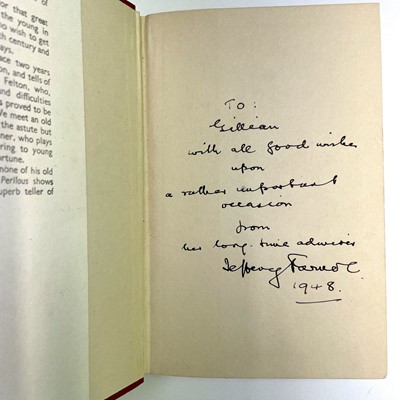 or that great
the young in
ho wish to get
h century and
ays.
ace two years
on, and tells of
Felton, who,
und difficulties
s proved to be
We meet an old
the astute but
ner, who plays
ring to young
ortune.
none of his old
Perilous shows
uperb teller of
To:
Gillian
with all good wishes
upon
a rather important
occasion
from
her long-time admirer
Jeffery Farnol
1948.